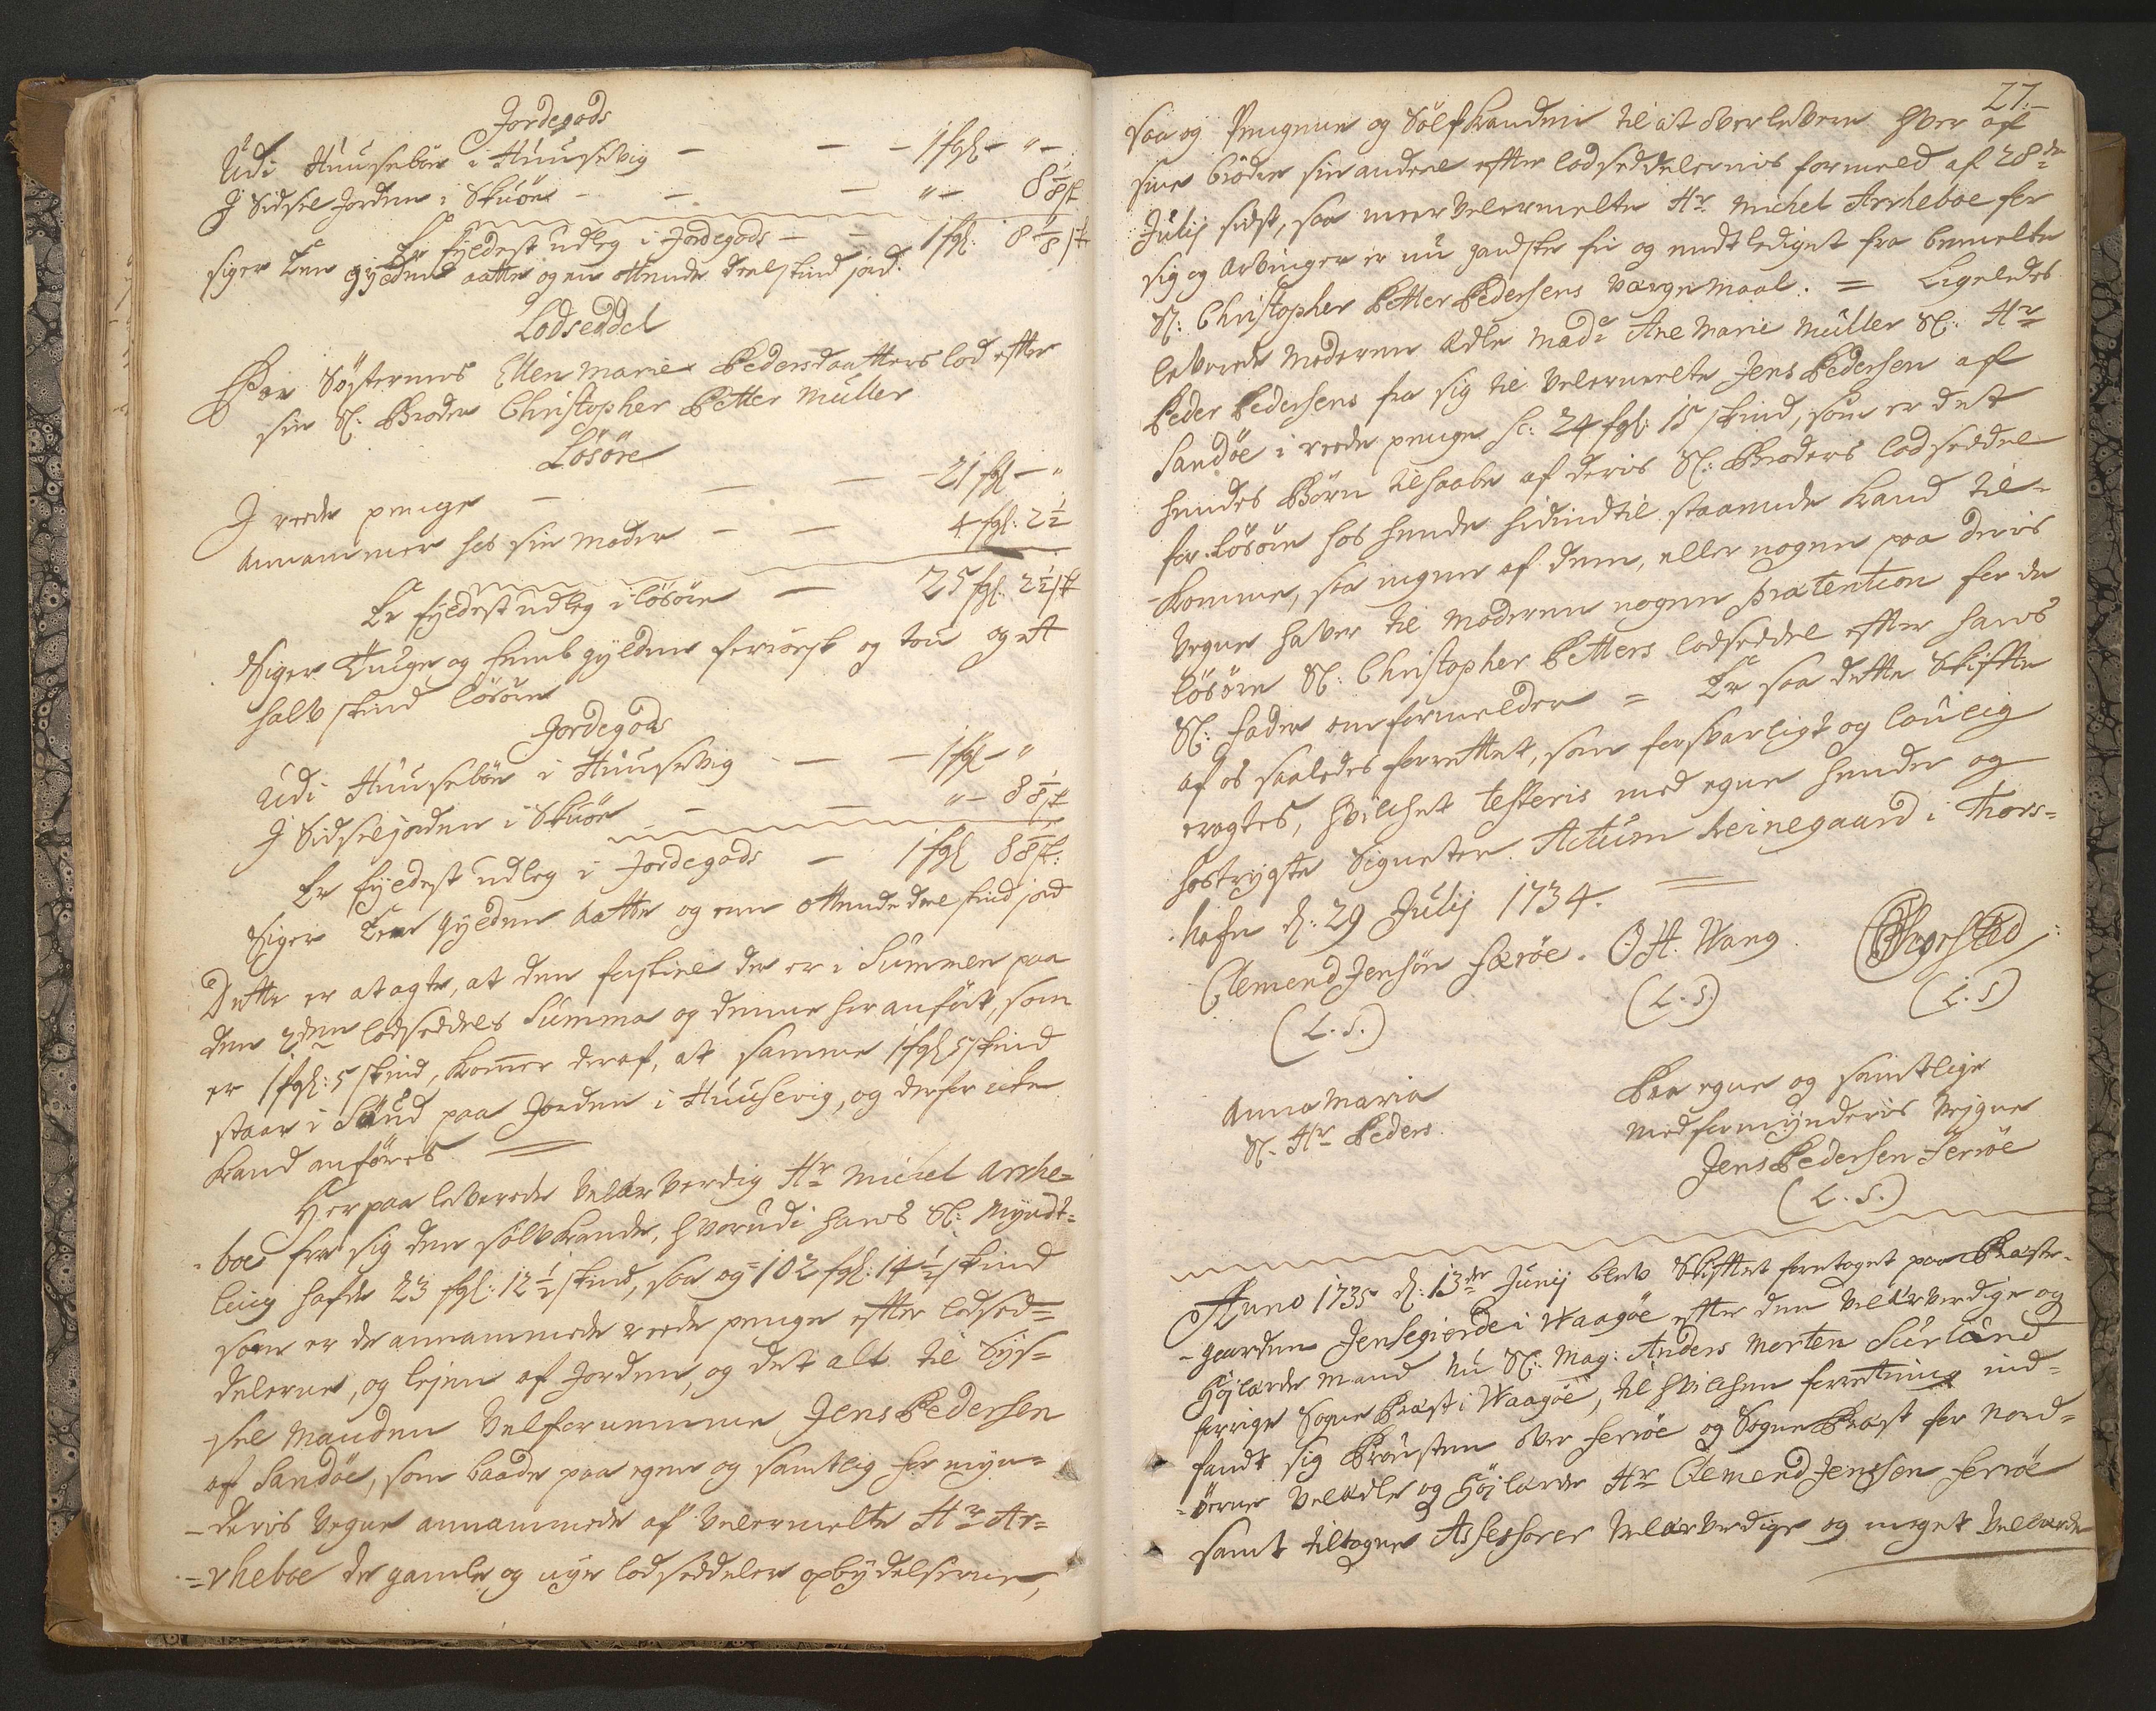 Jordegods
Udi Huuseböe i Huusevig — — — 1 fgl — " —
I Sidsel Jorden i Skuöe — — — " — 8 1/8 sk
Er fyldest udleg i Jordegods — — 1 fgl: 8 1/8 sk
siger Een gylden aatte og en ottende deel skind jord.
Lodseddel
For Söstermes Ellen Marie Pedersdaatters lod efter
sin Sl: Broder Christopher Petter Müller
Lösöre
I reede penge — — — 21 fgl — "
Annammer hos sin moder — — 4 fgl: 2 1/2
Er fyldest udleg i lösöre — 25 fgl. 2 1/2 sk
Siger Tiuge og femb gylden færöesk og tou og et
halv skind lösöre
Jordegods
Udi Huuseböe i Huusevig — — 1 fgl — "
I Sidseljorden i Skuöe — — " — 8 1/8 sk
Er fyldest udleg i Jordegods — 1 fgl 8 1/8 sk:
Siger Een gylden aatte og en ottende deel skind jord
Dette er at agte, at den forskiel der er i Summen paa
den 2den lodseddels Summa og denne her anfört, som
er 1 fgl: 5 skind, kommer deraf, at samme 1 fgl 5 skind
staar i paa Jorden i Huusevig, og derfor icke
kand anföres. =
Herpaa leverede Velærverdig Hr Michel Arrhe=
boe fra sig den sölvkande, hvorudi hans Sl: Myndt=
ling hafde 23 fgl: 12 1/2 skind, saa og 102 fgl: 14 1/2 skind
som er de annammede reede penge efter lodsed=
delerne, og lejen af Jorden, og det alt til Sys=
sel Manden Velfornemme Jens Pedersen
af Sandöe, som baade paa egen og samtlig formyn=
-deris vegne annammede af velermelte Hr Ar=
=rheboe de gamle og nye lodseddeler opbydelserne,
27.
saa og Pengene og Sölfkanden til at överlevere hver af
sine börn sin andeel efter lodseddelernis formeld af 28de
Julij sidst, saa meer velermelte Hr Michel Arrheboe for
sig og arvinger er nu gandske frie og endtlediget fra bemelte
Sl: Christopher Petter Pedersens værgemaal: = Ligeledes
leverede Moderen Ædle Made Ane Marie Müller Sl: Hr
Peder Pedersens fra sig til velermelte Jens Pedersen af
Sandöe i reede penge sc: 24 fgl: 15 skind, som er det
hendes Börn tilhaabe af deris Sl: Broders lodseddel
for lösöre hos hende hidindtil staaende kand til-
komme, saa ingen af dem, eller nogen paa deris
vegne haver til Moderen nogen prætention for de
lösöre Sl: Christopher Petters lodseddel efter hans
Sl: fader omformelder = Er saa dette Skiffte
af os saaledes forrettet, som forsvarligt og lovlig
eragtes, hvilchet testeris med egne hender og
hostrygte Signeter. Actum Reinegaard i Thors=
hafn d: 29 Julij 1734. =
Clemend Jensön Færöe. O. H. Wang. Thorsted
(L. S.) (L. S.) (L. S)
Anna Maria
Sl. Hr Peders.
Paa egne og samtlige
medformynderis Vegne
Jens Pedersen Feröe
(L. S.)
Anno 1735 d: 13de Junij blev Skifftet foretaget paa Præste-
-gaarden Jensegierde i Waagöe efter den Velærverdige og
Höjlærde mand nu Sl: Mag: Anders Morten Sürlünd
forrige Sogne Præst i Waagöe, til hvilchen forretning ind=
fandt sig Prousten över Feröe og Sogne Præst for Nord=
=öerne Velædle og Höjlærde Hr Clemend Jenssen Feröe
samt tiltagne Assessorer Velærverdige og meget Vellærde